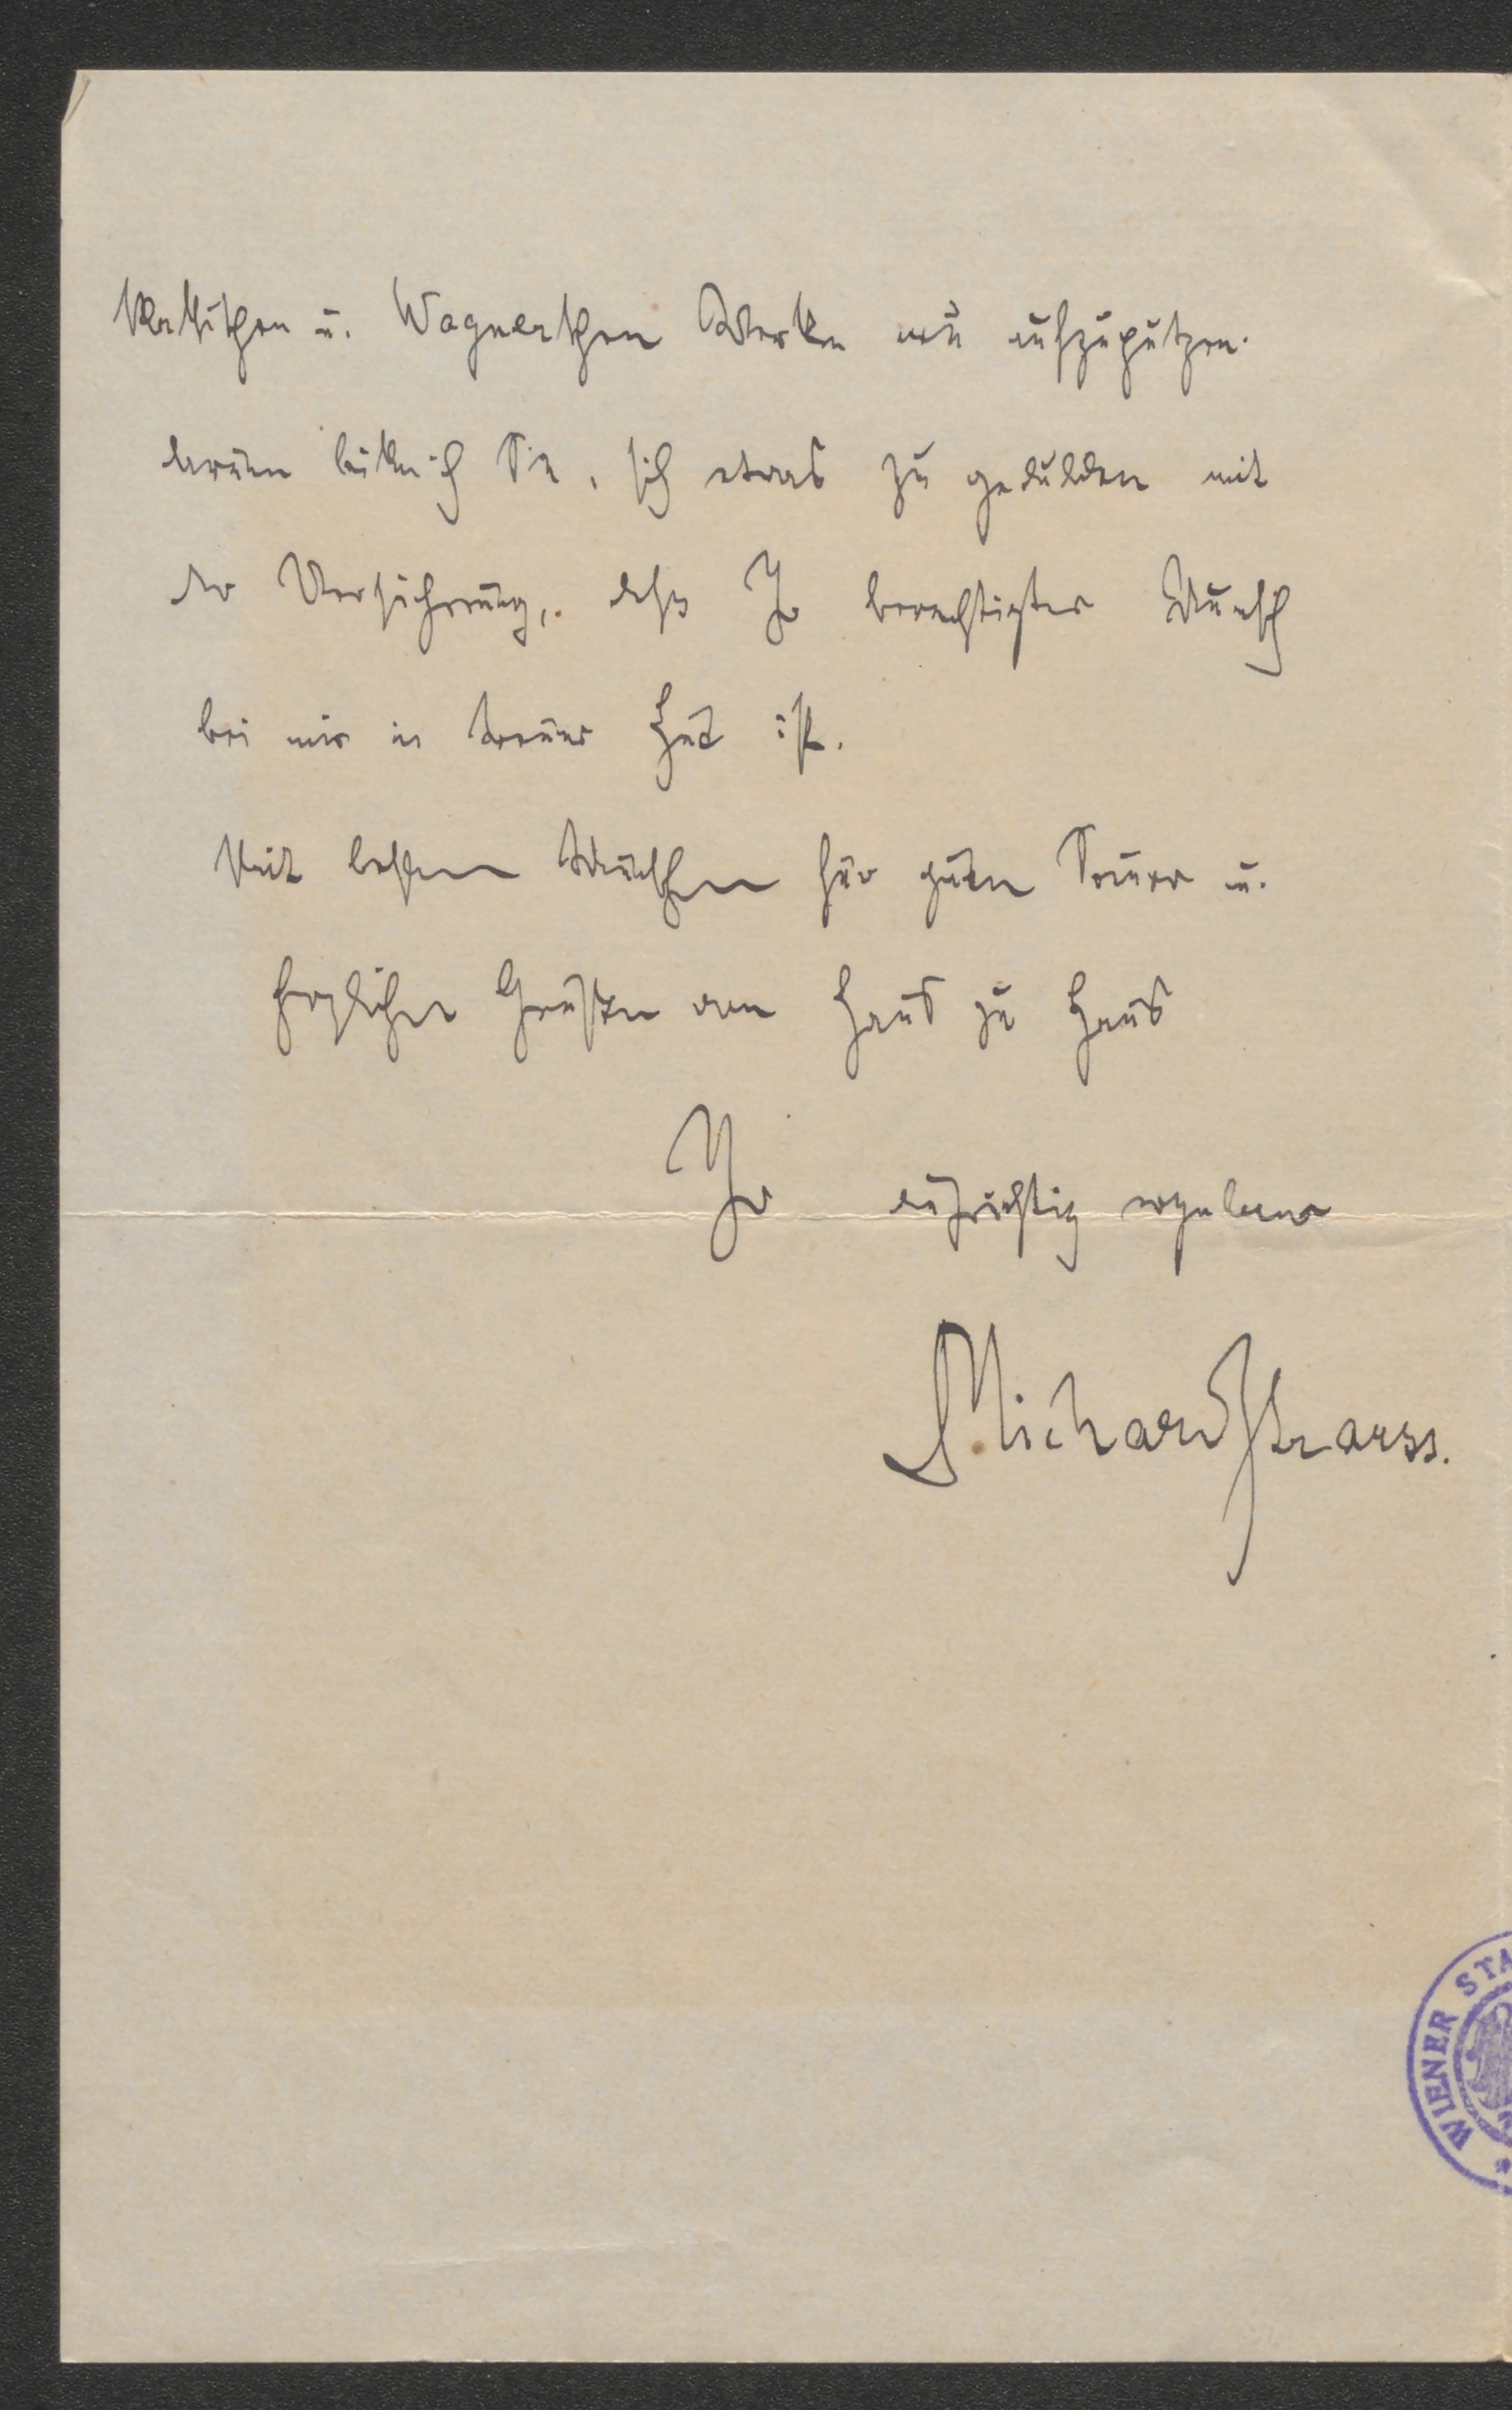 klassischen u. Wagnerschen Werke neu aufzuputzen.
darum bitte ich Sie, sich etwas zu gedulden mit
der Versicherung, daß Ihr berechtigter Wunsch
bei mir in treuer Hut ist.
Mit besten Wünschen für guten Sommer u.
herzlichen Grüßen von Haus zu Haus
Ihr aufrichtig ergebener
Richard Strauss.
WIENER STA